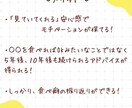 ・「見ていてくれる」安心感で
モチベーションが保てる！
・〇〇を食べれば〇kみたいなことではなく
5年後、10年後も続けられるアドバイスが
得られる！
・しっかり、食べ癖の振り返りができる！